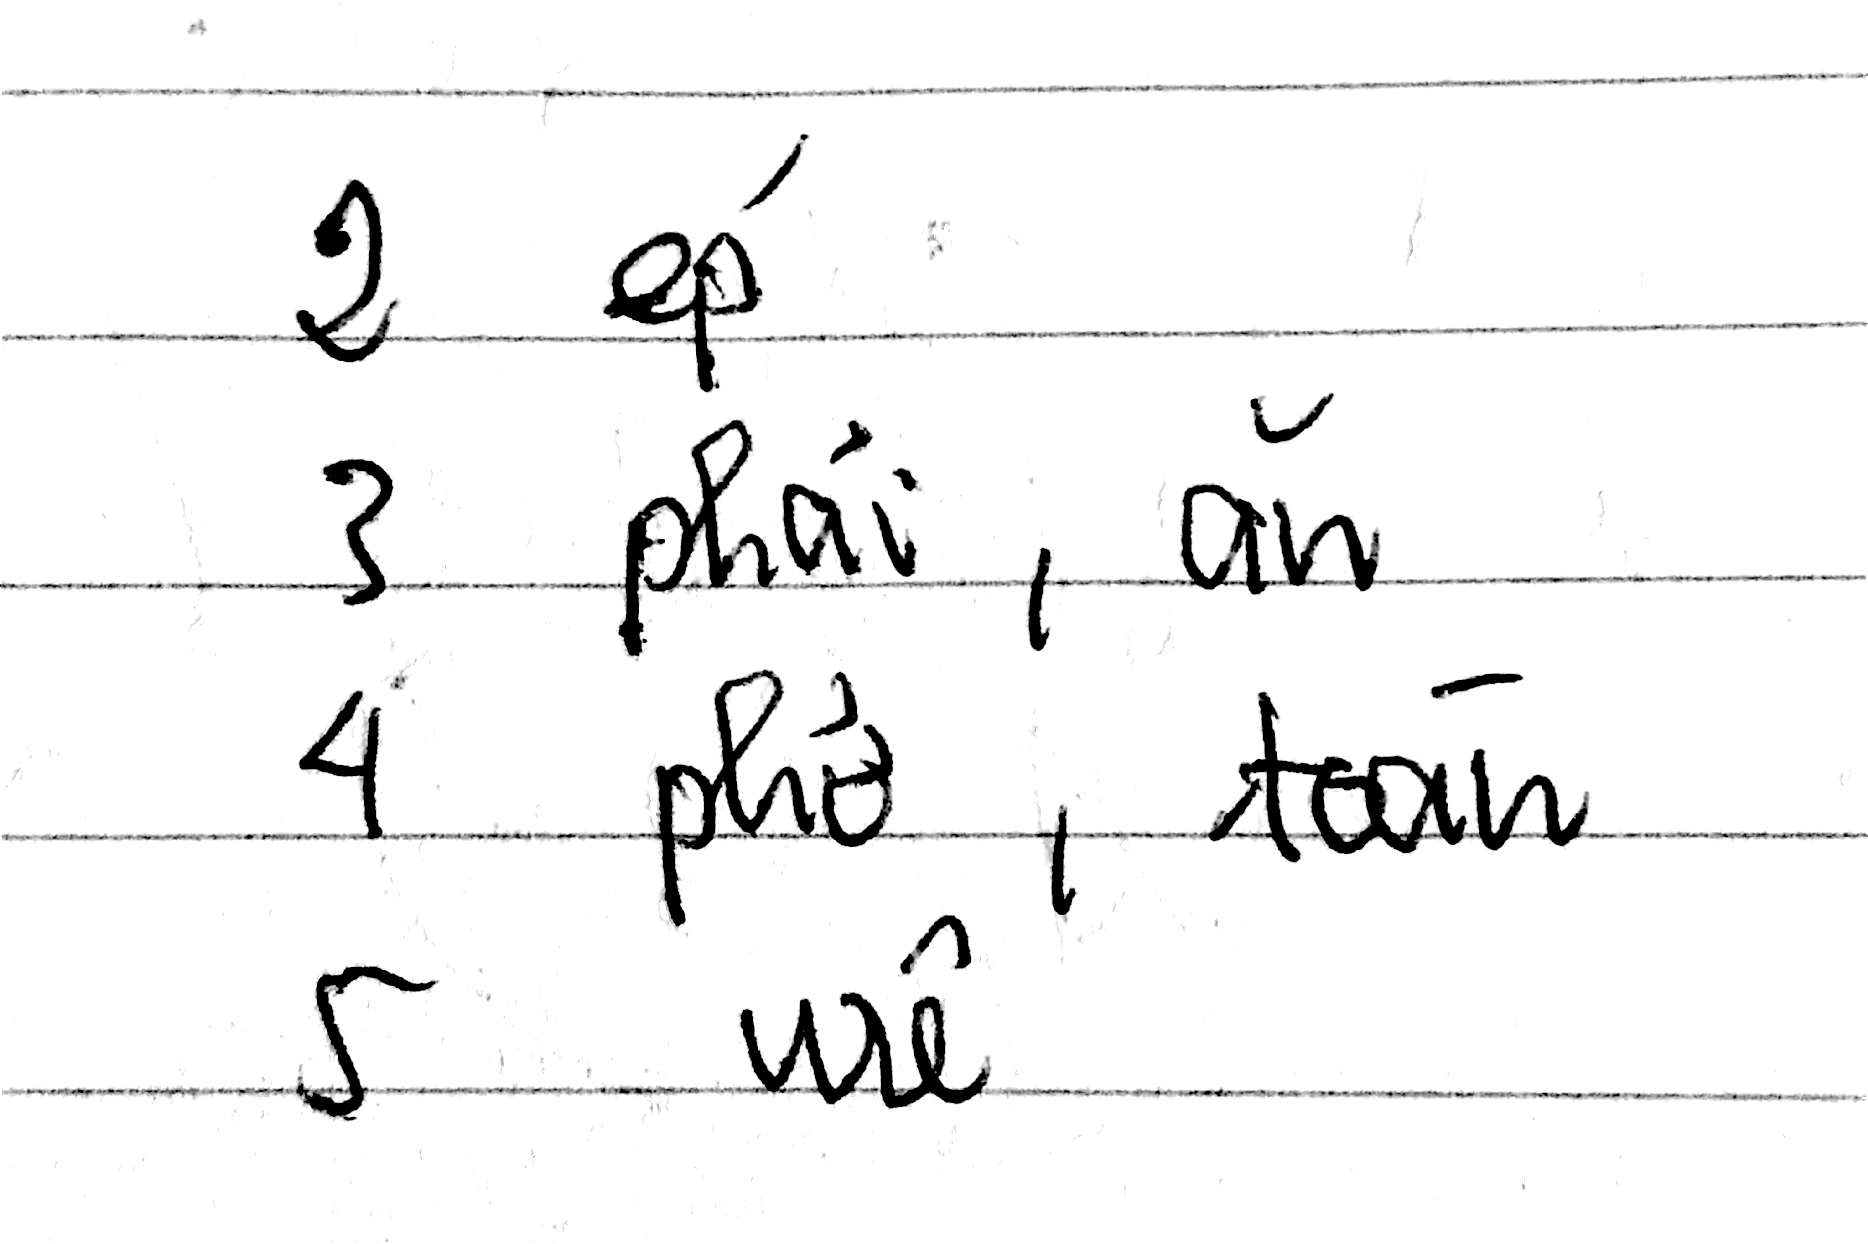 2 ép
3 phải, ăn
4 phở, toān
5 wê